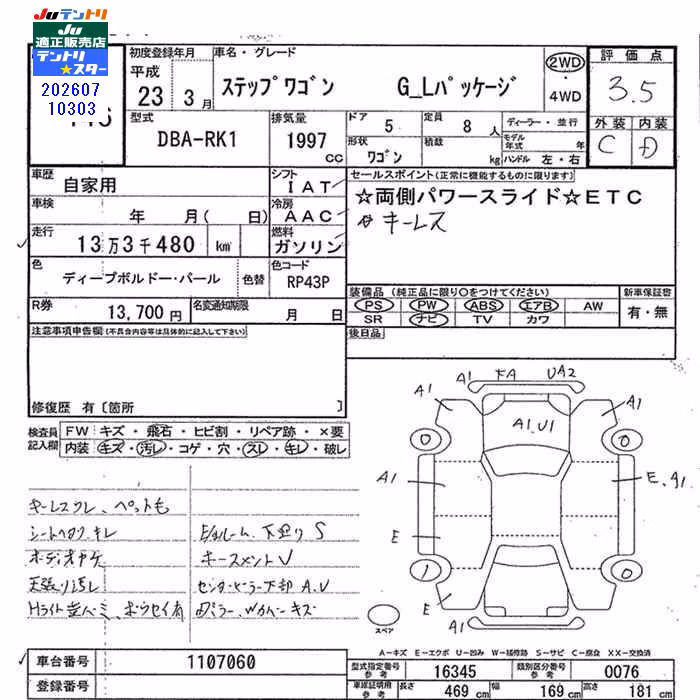 Juテントリ
JU
適正販売店
テントリ
★スター
202607
10303
初度登録年月
平成
23 3月
車名・グレード
ステップワゴン G_Lパッケージ
2WD
4WD
評価点
3.5
外装 内装
C D
型式
DBA-RK1
排気量
1997
cc
ドア
5
定員
8人
ディーラー・並行
形状
ワゴン
積載
kg
モデル年式 年
ハンドル 左・右
車歴
自家用
シフト
IAT
車検
年 月( 日)
冷房
AAC
走行
13万3千480 km
燃料
ガソリン
色
ディープボルドー・パール
色替
色コード
RP43P
R券
13,700円
名変通知期限
月 日
セールスポイント(正常に機能するものに限ります)
☆両側パワースライド☆ETC
キーレス
装備品(純正品に限り○をつけてください)
PS PW ABS エアB AW
SR ナビ TV カワ
新車保証書
有・無
後日品
注意事項申告欄(不具合内容等は具体的に記入して下さい)
修復歴 有〔箇所 〕
検査員記入欄
FW キズ・飛石・ヒビ割・リペア跡・×要
内装 キズ・汚レ・コゲ・穴・スレ・キレ・破レ
シートヘタリ キレ
天張り汚レ
下廻りS
センターピラー下部 A.U
A1 FA UA2
A1 A1
A1.U1
0 0
A1 E.A1
E
1 0
E
A1
スペア
A-キズ E-エクボ U-凹み W-補修跡 S-サビ C-腐食 XX-交換済
車台番号
1107060
登録番号
型式指定番号
参考
16345
類別区分番号
参考
0076
車庫証明用
参考
長さ
469 cm
幅
169 cm
高さ
181 cm